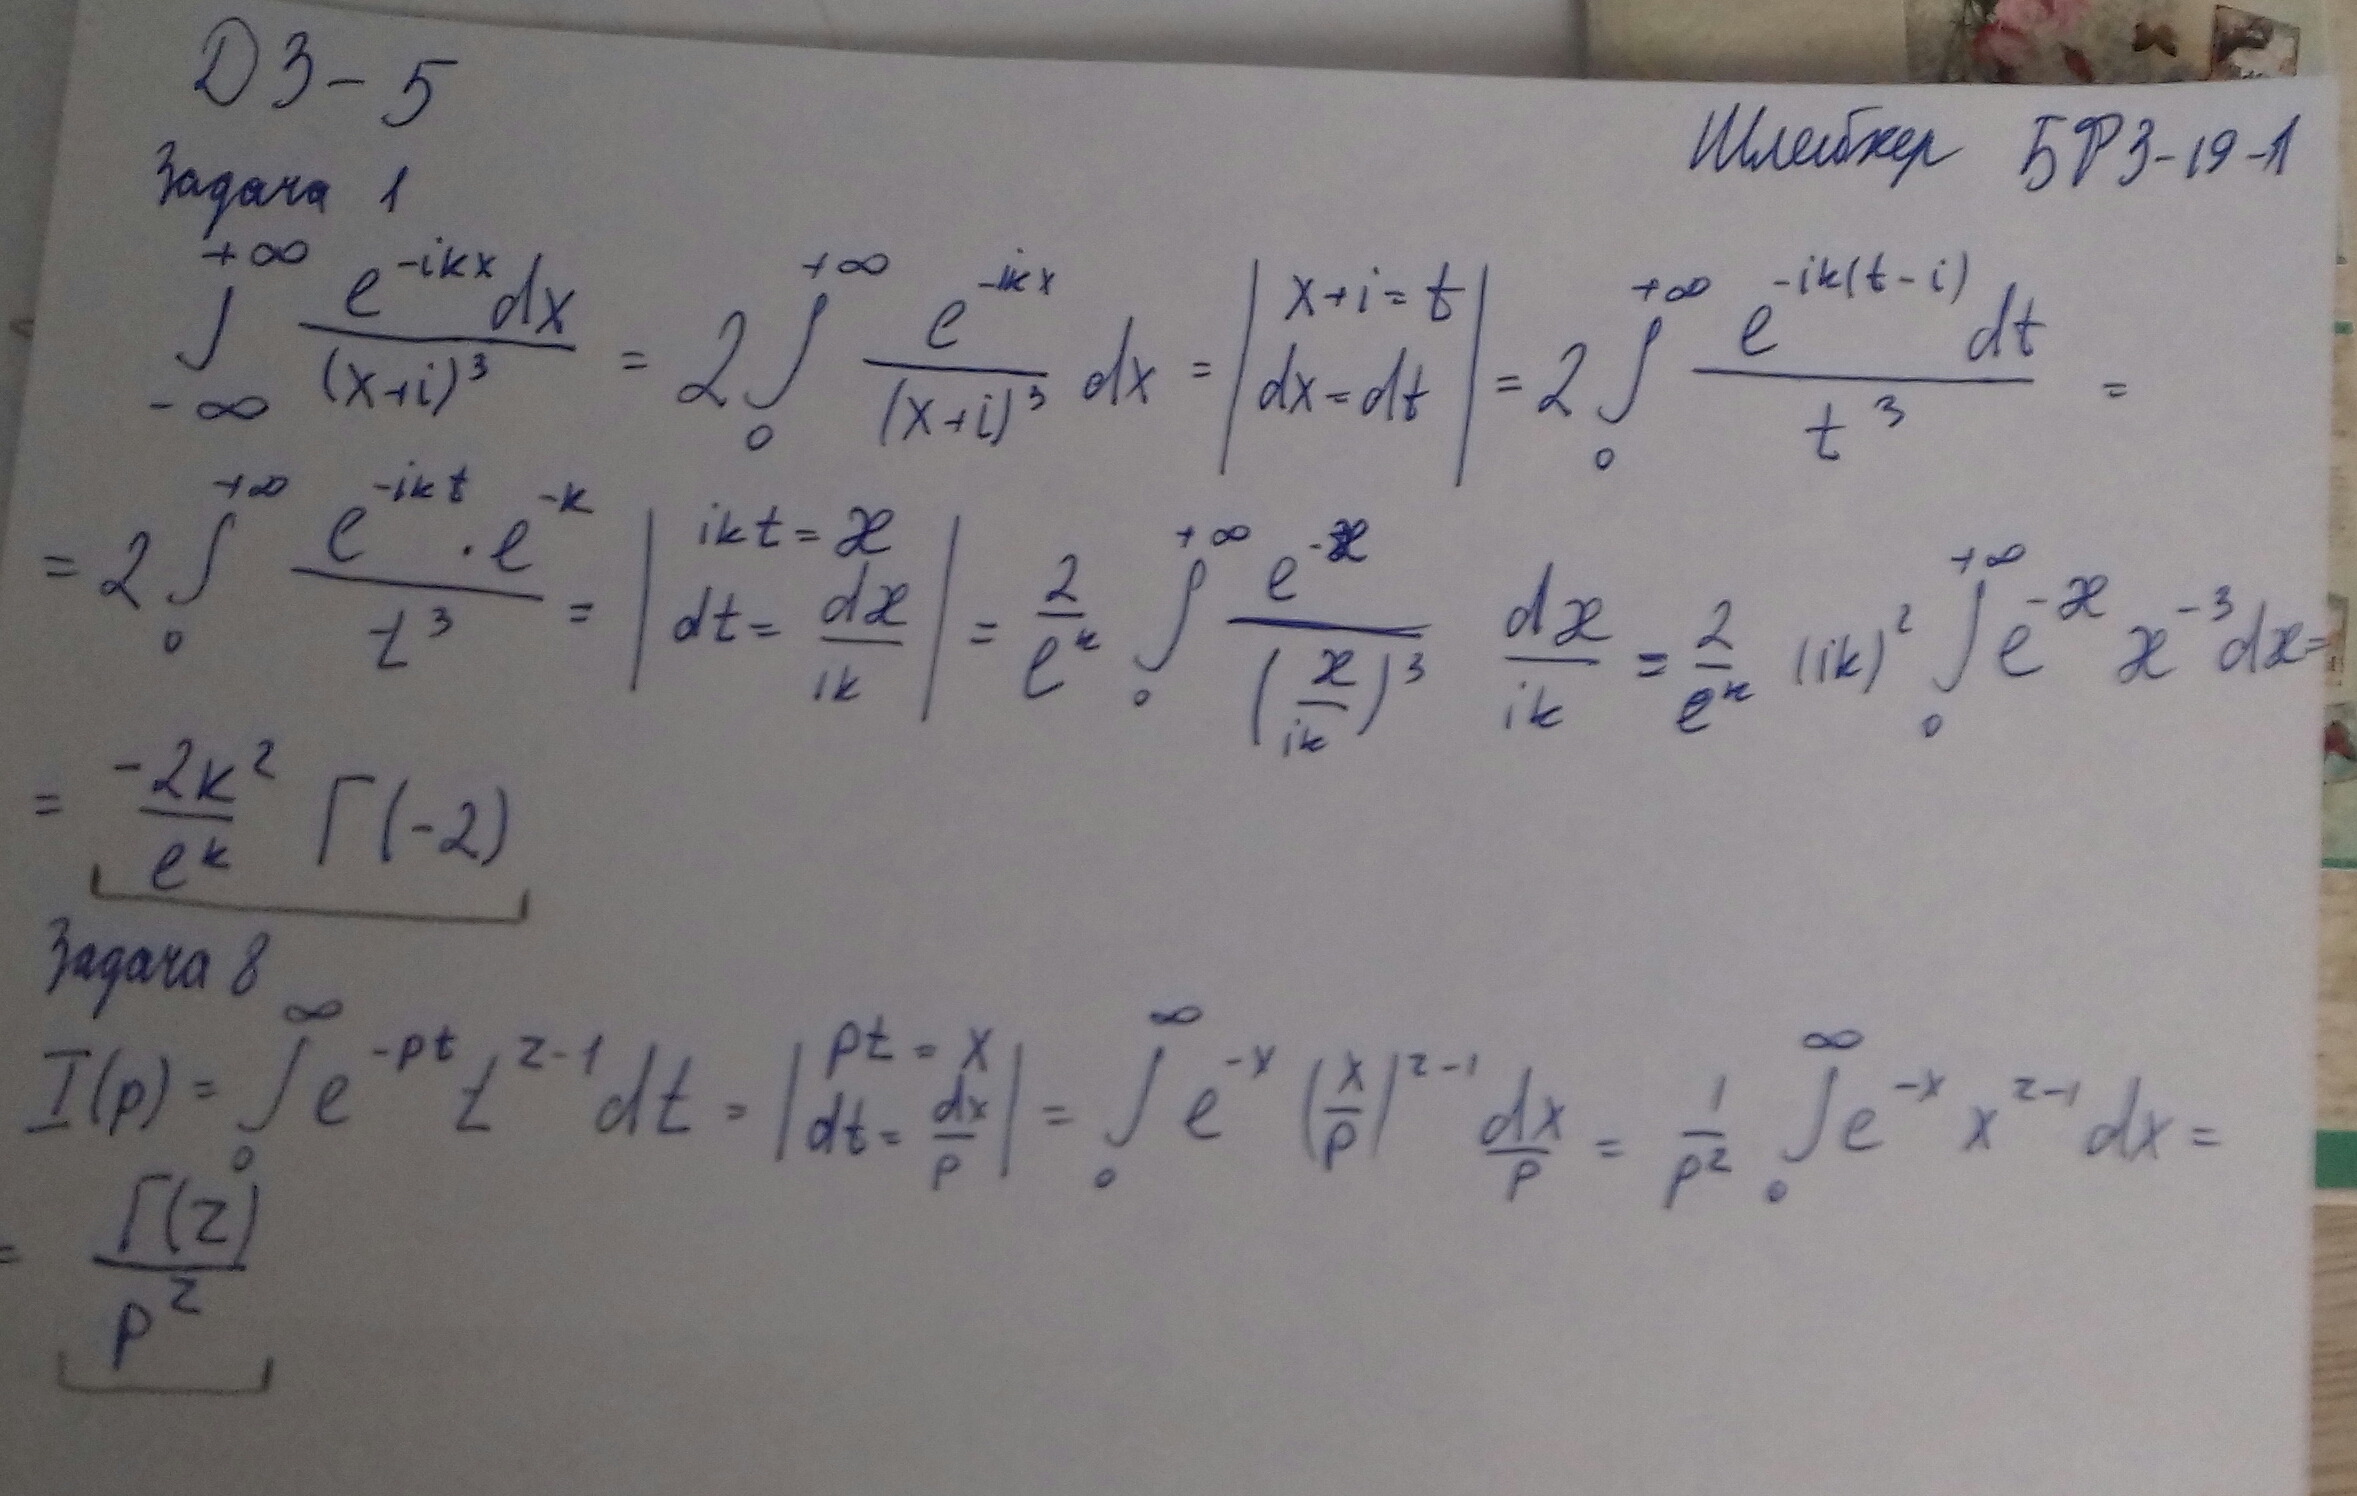 ДЗ-5
Шлейхер БФЗ-19-1
Задача 1
\int_{-\infty}^{+\infty} \frac{e^{-ikx} dx}{(x+i)^3} = 2 \int_0^{+\infty} \frac{e^{-ikx}}{(x+i)^3} dx = | x+i = t dx = dt | = 2 \int_0^{+\infty} \frac{e^{-ik(t-i)} dt}{t^3} =
= 2 \int_0^{+\infty} \frac{e^{-ikt} \cdot e^{-k}}{t^3} = | ikt = x dt = \frac{dx}{ik} | = \frac{2}{e^k} \int_0^{+\infty} \frac{e^{-x}}{(\frac{x}{ik})^3} \frac{dx}{ik} = \frac{2}{e^k} (ik)^2 \int_0^{+\infty} e^{-x} x^{-3} dx =
= \frac{-2k^2}{e^k} Г(-2)
Задача 8
I(p) = \int_0^{\infty} e^{-pt} t^{z-1} dt = | pt = x dt = \frac{dx}{p} | = \int_0^{\infty} e^{-x} (\frac{x}{p})^{z-1} \frac{dx}{p} = \frac{1}{p^z} \int_0^{\infty} e^{-x} x^{z-1} dx =
= \frac{Г(z)}{p^z}